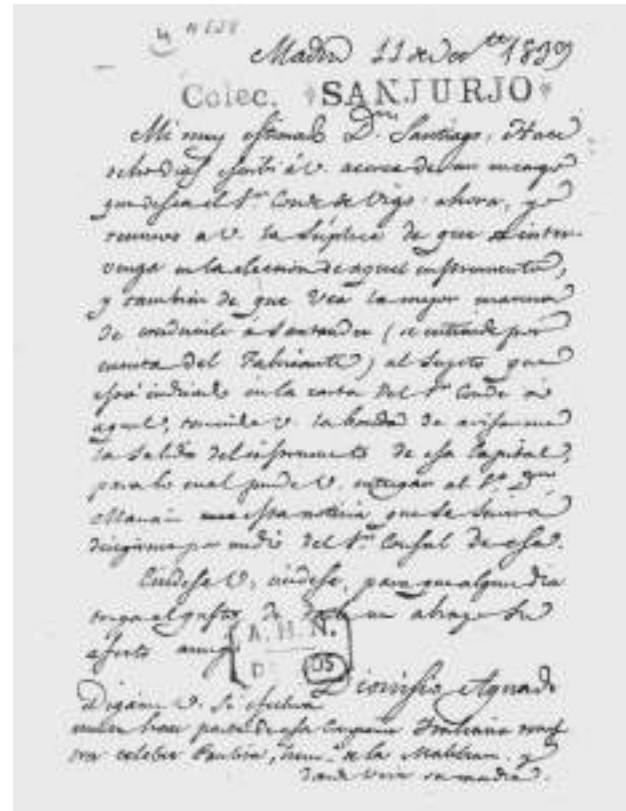 4
Madrid 11 de 1839
Colec. SANJURJO
Mi muy estimado Dn. Santiago. Hace
ocho dias escribí á V. acerca de un encargo
que desea el Sr. Conde de Vigo: ahora, yo
renuevo a V. la súplica de que inter-
venga en la eleccion de aquel instrumento,
y tambien de que vea la mejor manera
de conducirlo á Santander (se entiende por
cuenta del Fabricante) al sugeto que
está indicado en la carta del Sr. Conde á
aquel, V. la bondad de avisarme
la salida del instrumento de esa Capital,
para lo cual puede V. entregar al Sr. Dn.
esta noticia que se servirá
dirigirme por medio del Sr. Consul de esa.
Cuidese V., cuidese, para que algun dia
tenga el gusto de un abrazo su
afecto amigo
A. H. N.
D
Dionisio Aguado
Digame V. si efectiva-
mente hace parte de esa Compania Italiana
celebre Paulina, herma. de la Malibran, y
donde vive su madre.